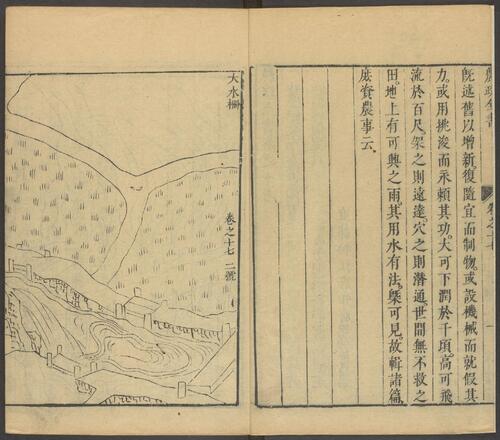 農政全書
卷之十七
既述舊以增新。復隨宜而制物。或設機械而就假其
力。或用挑浚而永賴其功。大可下潤於千頃。高可飛
流於百尺。架之則遠達。穴之則潛通。世間無不救之
田。地上有可興之雨。其用水有法。槩可見。故輯諸篇。
庻資農事云。
大水柵
卷之十七 二號